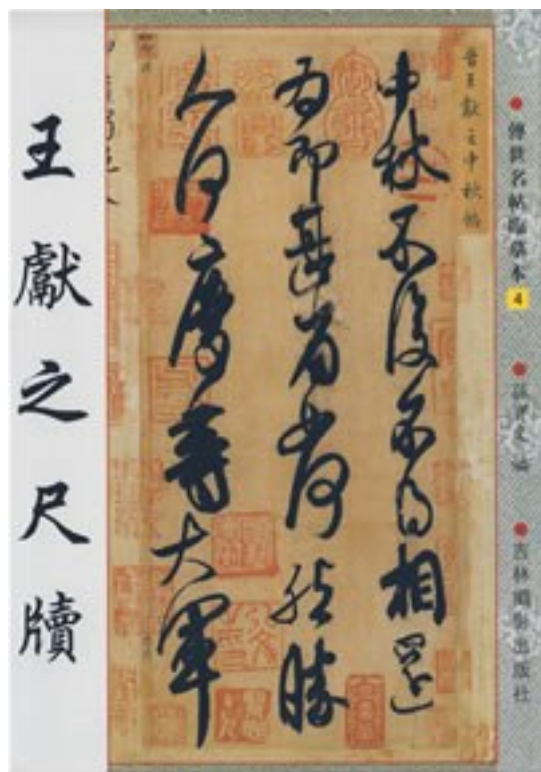 傳世名帖臨摹本 4
編
吉林攝影出版社
晉王獻之中秋帖
中秋不復不得相還
為即甚省如何然勝
人何慶等大軍
王獻之尺牘